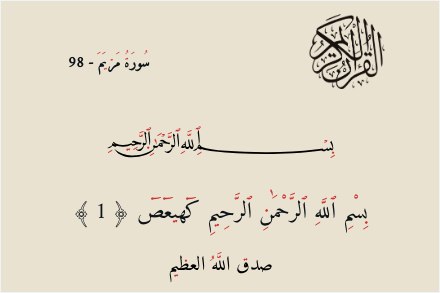 القرآن الكريم
سُورَةُ مَرْيَمَ - 98
بِسْمِ اللَّهِ الرَّحْمَٰنِ الرَّحِيمِ
بِسْمِ ٱللَّهِ ٱلرَّحْمَٰنِ ٱلرَّحِيمِ كٓهيعٓصٓ ﴿ 1 ﴾
صدق اللَّهُ العظيم